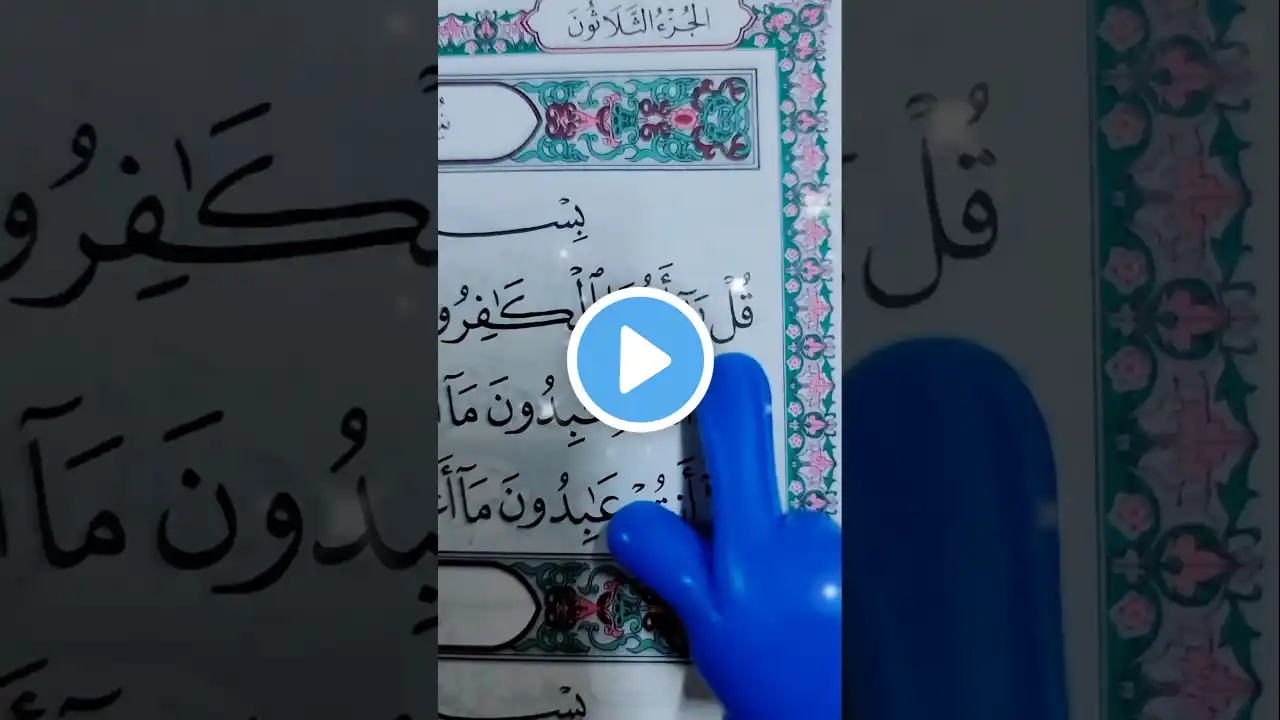 الجُزْءُ الثَّلَاثُونَ
بِسْـ
قُلْ يَٰٓأَيُّهَا ٱلْكَٰفِرُو
عَٰبِدُونَ مَآ
أَنتُمْ عَٰبِدُونَ مَآ أَ
بِسْـ